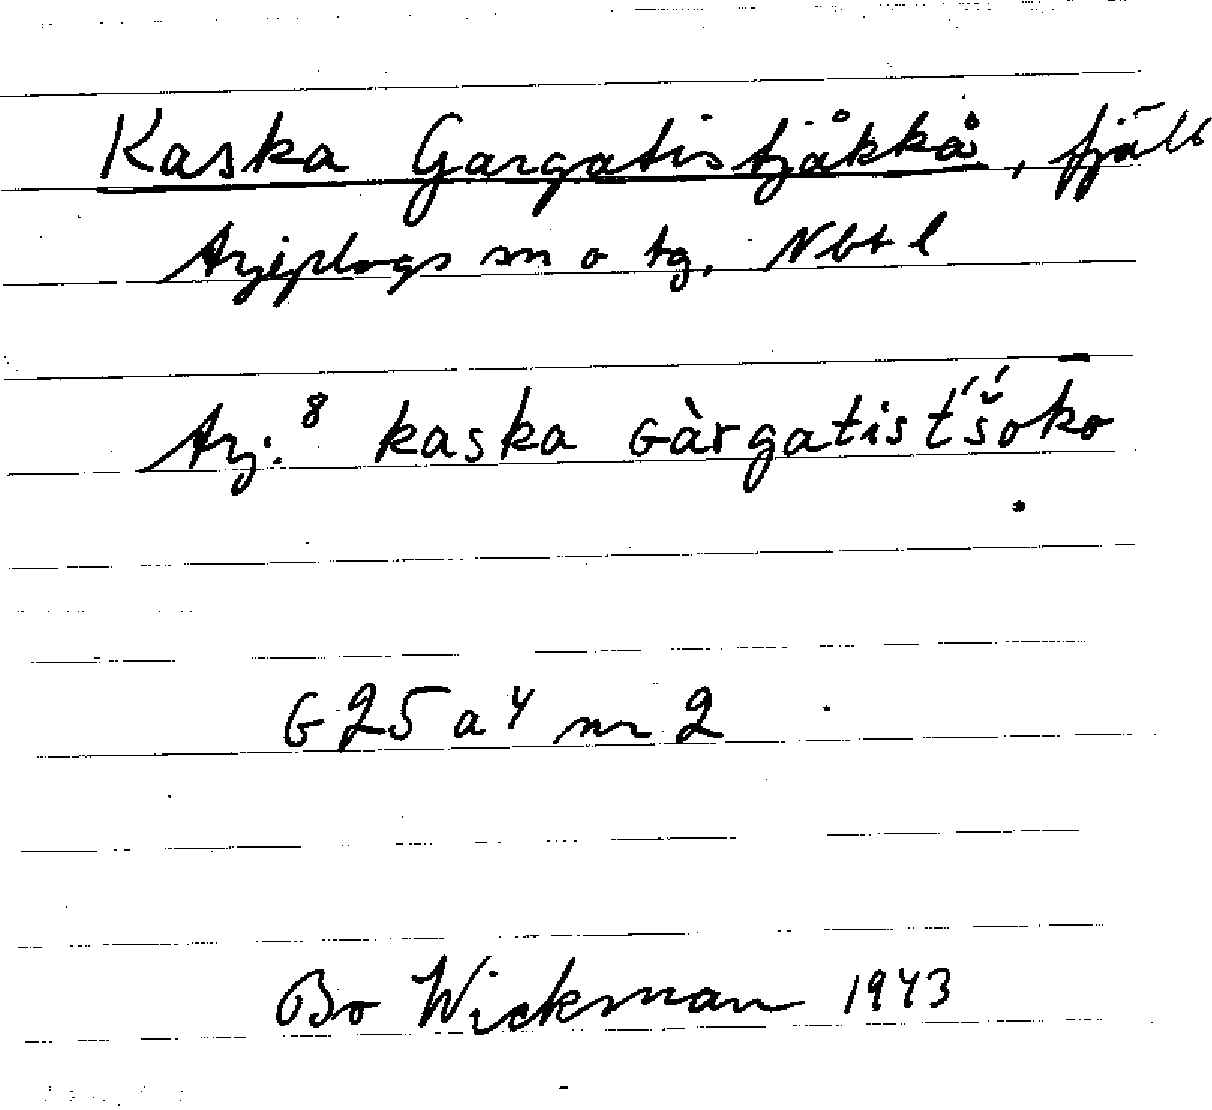 Kaska Gargatistjåkkå, fjäll
Arjeplogs sn o tg, Nbt l
Arj:⁸ kaska ɢàrgatist́š́ok̄o
G 25 a 4 nr 2
Bo Wickman 1943